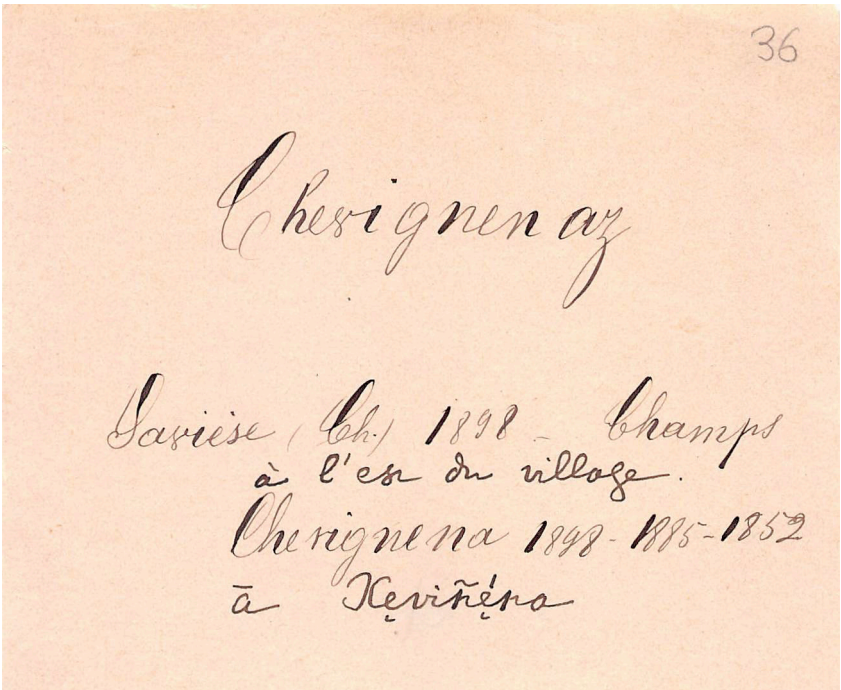 36
Chevignenaz
Savièse (Ch.) 1898 - Champs
à l'est du village.
Chevignena 1898 - 1885 - 1852
ā